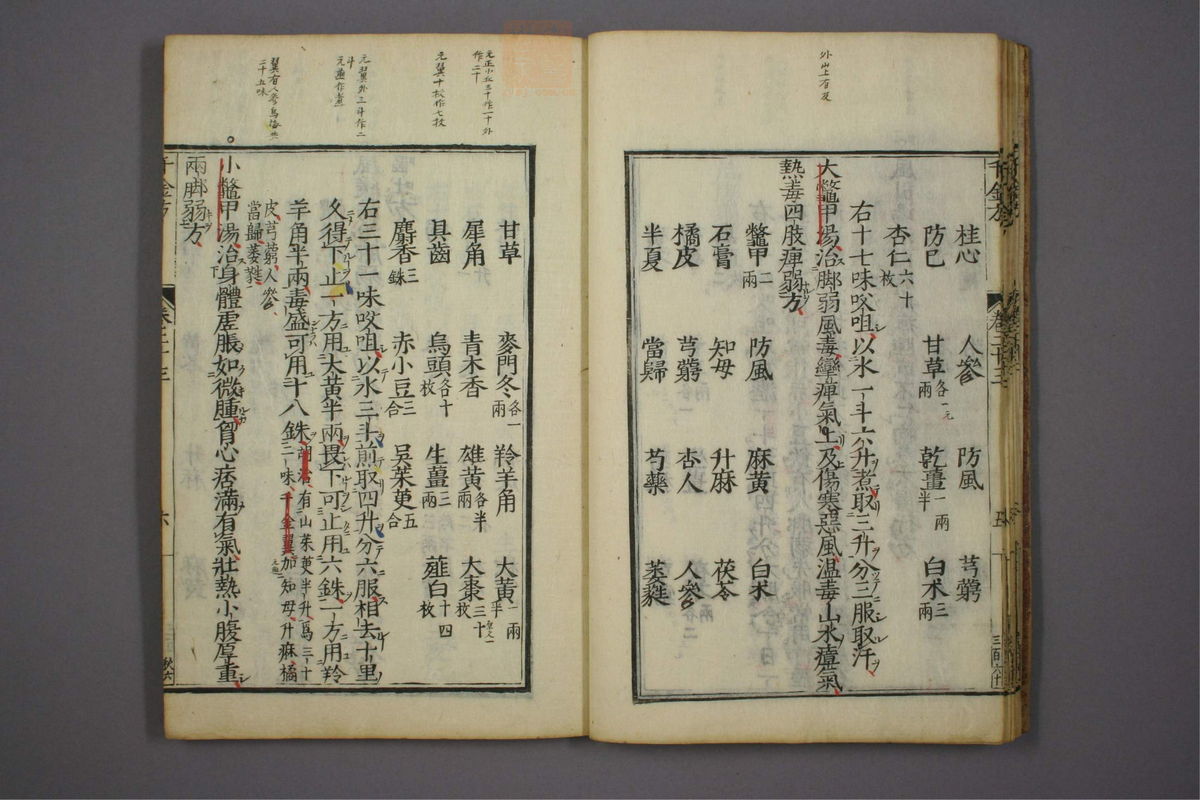 外山上有及
桂心 人參 防風 芎藭
防巳 甘草各一兩 乾薑一兩半 白朮三兩
杏仁六十枚
右十七味㕮咀以水一斗六升煮取三升分三服取汗
大鼈甲湯治脚弱風毒攣痺氣上及傷寒惡風溫毒山水瘴氣
熱毒四肢痺弱方
鼈甲二兩 防風 麻黃 白朮
石膏 知母 升麻 茯苓
橘皮 芎藭 杏人 人參
半夏 當歸 芍藥 萎蕤
甘草 麥門冬各一兩 羚羊角 大黃一兩半
犀角 青木香 雄黃各半兩 大棗三十枚
具齒 烏頭各十枚 生薑三兩 薤白十四枚
麝香三銖 赤小豆三合 吳茱萸五合
右三十一味㕮咀以水三斗煎取四升分六服相去十里
久得下止一方用大黃半兩畏下可止用六銖一方用羚
羊角半兩毒盛可用十八銖胡洽有山茱萸半升爲三十二味千金翼加知母升麻橘
皮芎藭人參當歸萎蕤
小鼈甲湯治身體虛脹如微腫胷心痞滿有氣壯熱小腹厚重
兩脚弱方
千金方
卷二十三
六
元翼十枚作七枚
翼有人參烏梅共二十五味